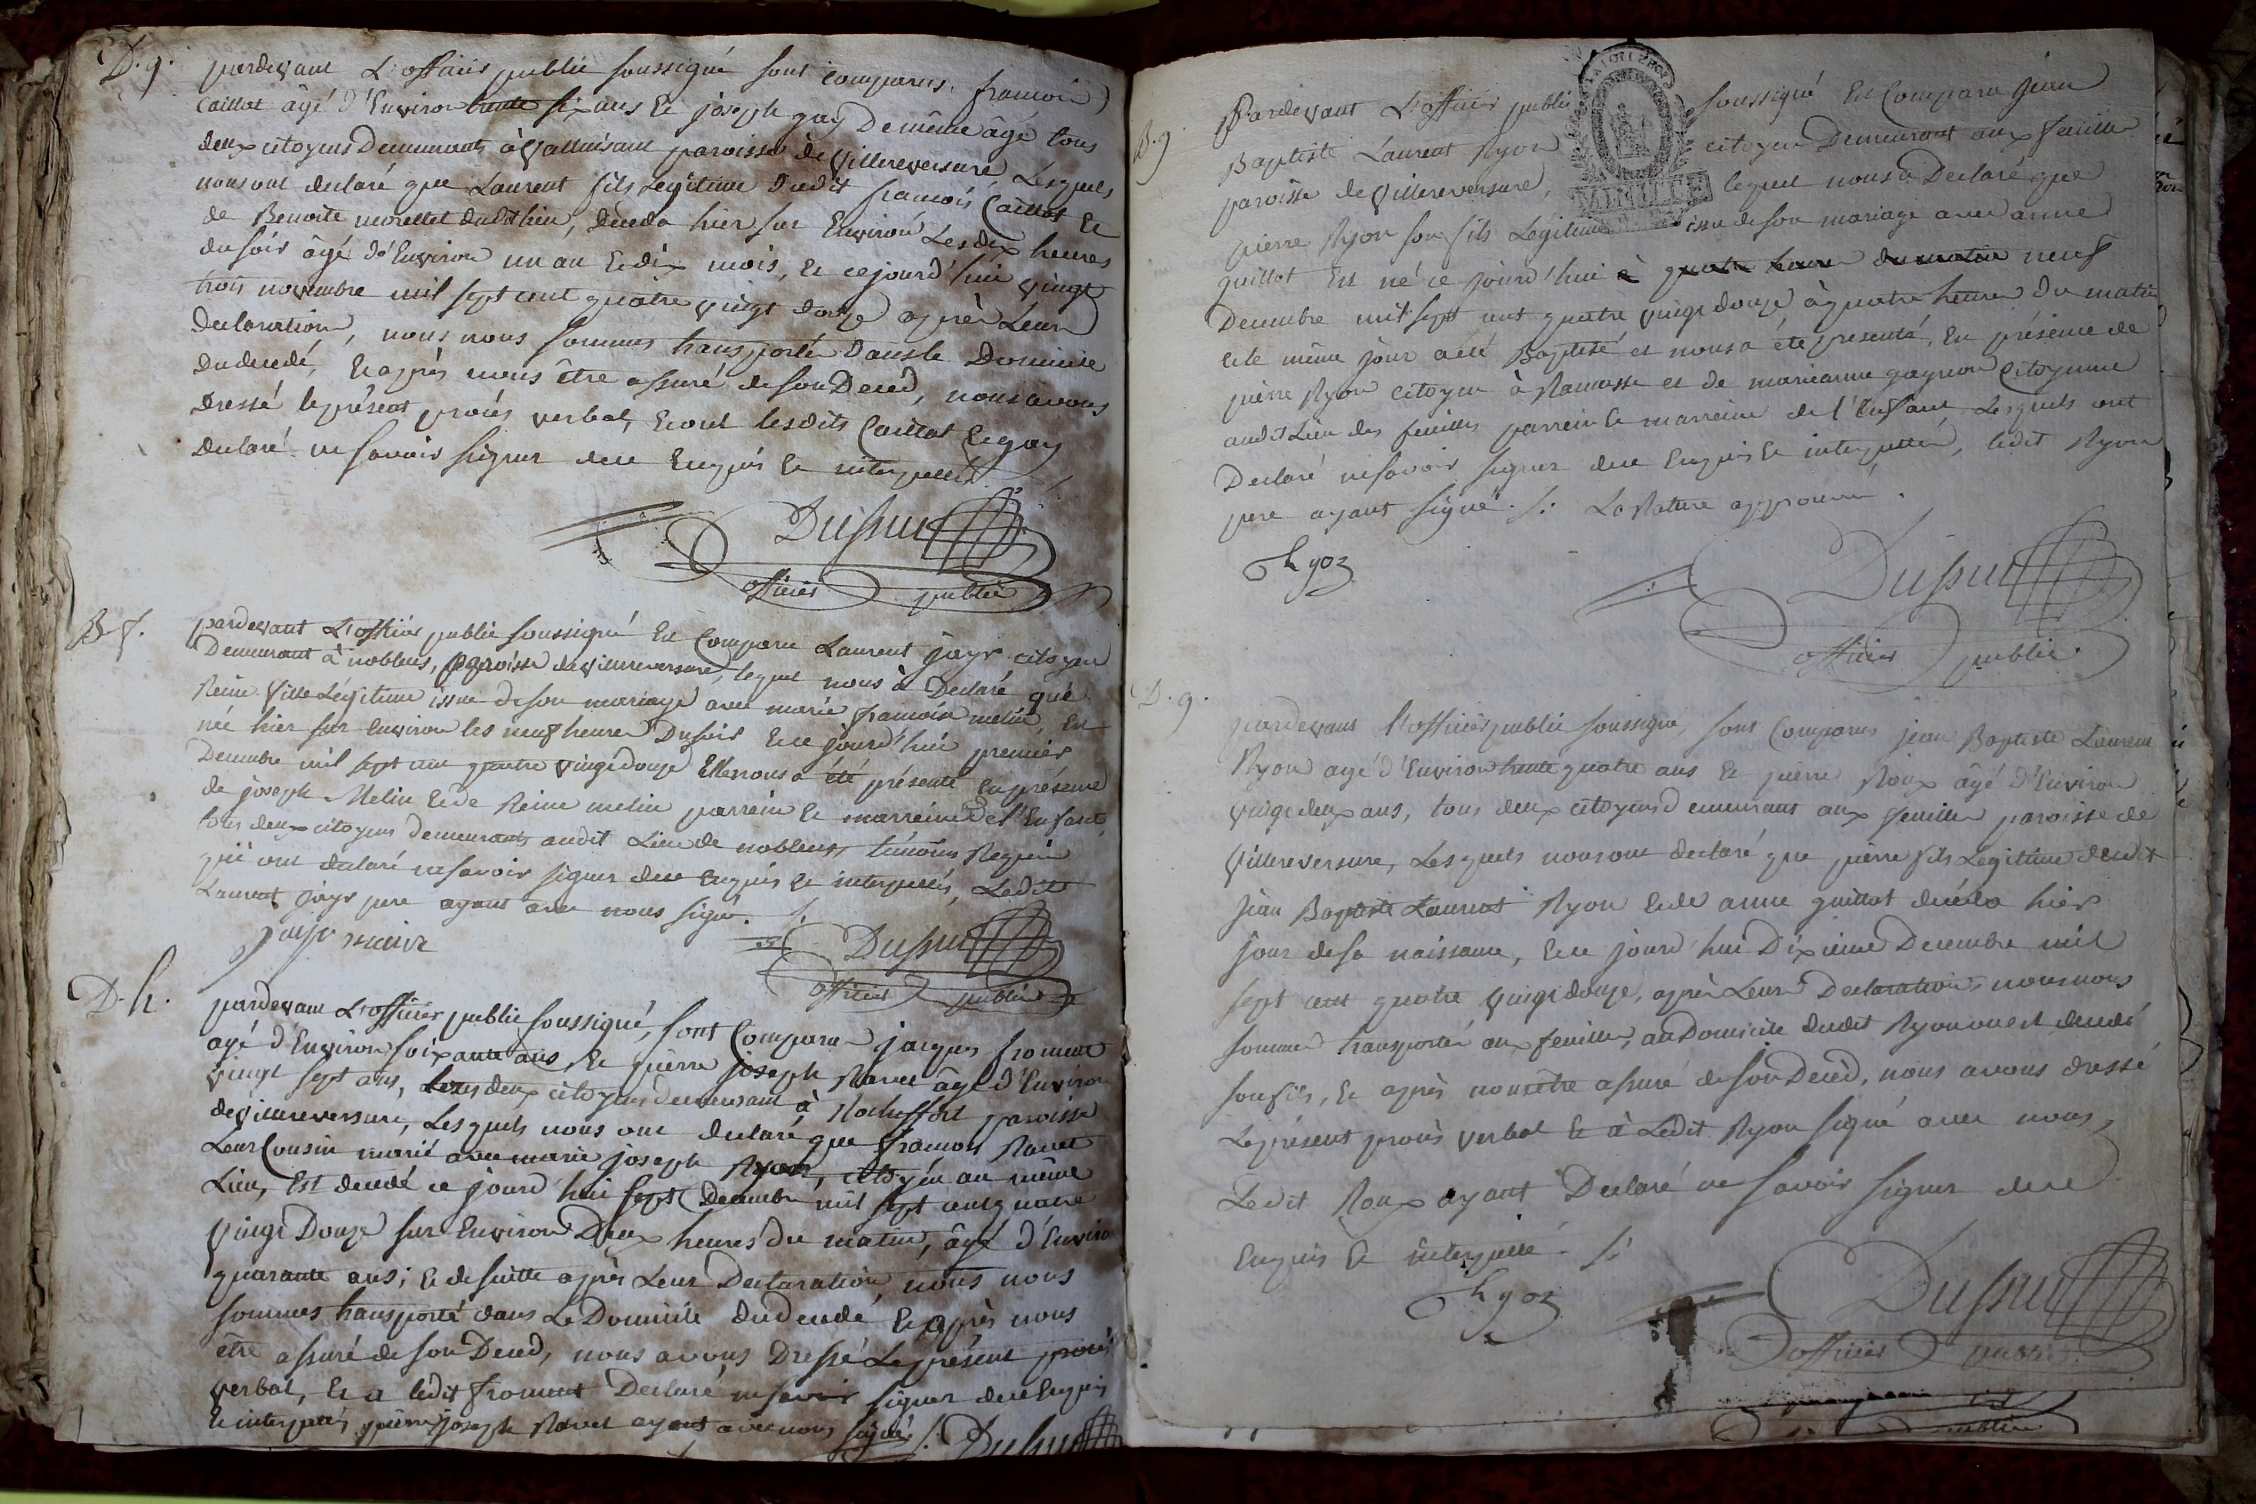 D. g.
pardevant L'officier public soussigné sont comparus françois
Caillot âgé d'Environ trente six ans Et joseph gay De même âgé tous
deux citoyens Demeurants à paroisse de villereversure Lesquels
nous ont declaré que Laurent fils Legitime dudit françois Caillot Et
de Benoite morellet dudit lieu, deceda hier sur Environ Les dix heures
du soir âgé d'Environ un an Et dix mois, Et ce jourd'hui vingt
trois novembre mil sept cent quatre vingt douze après Leur
declaration, nous nous sommes transporté Dans le Domicile
du decedé, Et après nous être assuré de son Decès, nous avons
Dressé le présent procès verbal, Et ont lesdits Caillot Et gay
Declaré ne savoir signer dece Enquis Et interpellés
Dufour
officier public
B. f.
pardevant L'officier public soussigné Est Comparu Laurent jayr citoyen
Demeurant à noblens, paroisse de villereversure, lequel nous à Declaré que
Reine fille Légitime issue de son mariage avec marie françoise melin, Est
née hier sur Environ les neuf heures Du soir Et ce jourd'hui premier
Decembre mil sept cent quatre vingt douze Elle nous a été présenté En présence
de joseph Melin Et de Reine melin parrein Et marreine de l'Enfant,
tous deux citoyens demeurants audit Lieu de noblens, témoins Requis
qui ont declaré ne savoir signer dece Enquis Et interpellés, Ledit
Laurent jayr pere ayant avec nous signé. /.
jayr maire
Dufour
officier public
D. h.
pardevant L'officier public soussigné, sont Comparu jacques froment
agé d'Environ soixante ans, Et pierre joseph Ravet âgé d'Environ
vingt sept ans, tous deux citoyens demeurant à Rocheffort paroisse
de villereversure, Lesquels nous ont declaré que françois Ravet
Leur Cousin marié avec marie joseph Ryon, citoyen au même
Lieu, Est decedé ce jourd'hui sept Decembre mil sept cent quatre
vingt Douze sur Environ Deux heures du matin, âgé d'Environ
quarante ans; Et de suitte après Leur Declaration, nous nous
sommes transporté dans Le Domicile du decedé Et après nous
être assuré de son Decès, nous avons Dressé Le présent procès
verbal, Et a ledit froment Declaré ne savoir signer dece Enquis
Et interpellés, pierre joseph Ravet ayant avec nous signé /. Dufour
B. g.
Pardevant L'officier public soussigné Est Comparu Jean
Baptiste Laurent Ryon citoyen Demeurant aux feuilles
paroisse de villereversure, lequel nous à Declaré que
MINUTE
pierre Ryon son fils Légitime issu de son mariage avec anne
guillot Est né ce jourd'hui à quatre heures du matin neuf
Decembre mil sept cent quatre vingt douze, à quatre heures Du matin
et le même jour a été Baptisé et nous a été presenté, En présence de
pierre Ryon citoyen à Ramasse et de marianne gagneon citoyenne
audit Lieu des feuilles parrein Et marreine de l'Enfant, Lesquels ont
Declaré ne savoir signer dece Enquis Et interpellés, ledit Ryon
pere ayant signé. /. La Rature approuvé.
Ryon
Dufour
officier public.
D. g.
pardevant l'officier public soussigné, sont Comparus jean Baptiste Laurent
Ryon agé d'Environ trente quatre ans Et pierre Roux âgé d'Environ
vingt deux ans, tous deux citoyens Demeurants aux feuilles paroisse de
villereversure, Lesquels nous ont declaré que pierre fils Legitime dudit
Jean Baptiste Laurent Ryon Et de anne guillot deceda hier
jour de sa naissance, Et ce jourd'hui Dixieme Decembre mil
sept cent quatre vingt douze, après Leurs Declaration, nous nous
sommes transporté aux feuilles, au Domicile dudit Ryon ou est decedé
son fils, Et après nous être assuré de son Decès, nous avons dressé
Le présent procès verbal Et à Ledit Ryon signé avec nous,
Ledit Roux ayant Declaré ne savoir signer dece
Enquis Et interpellé. /.
Ryon
Dufour
officier public.
public